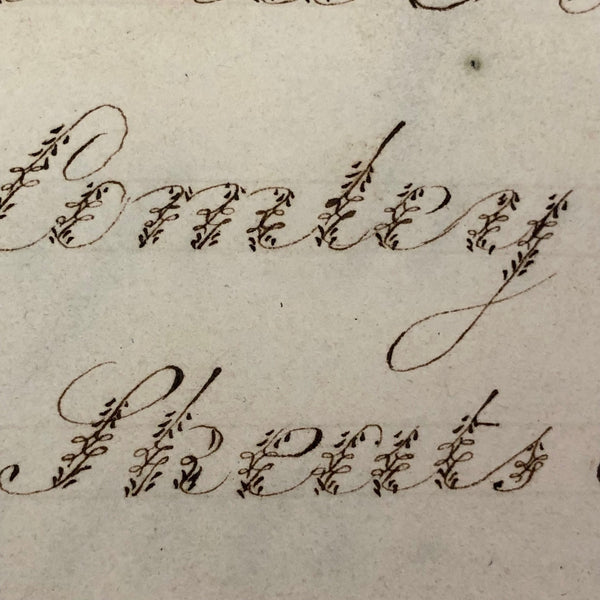 Comley
Skeats